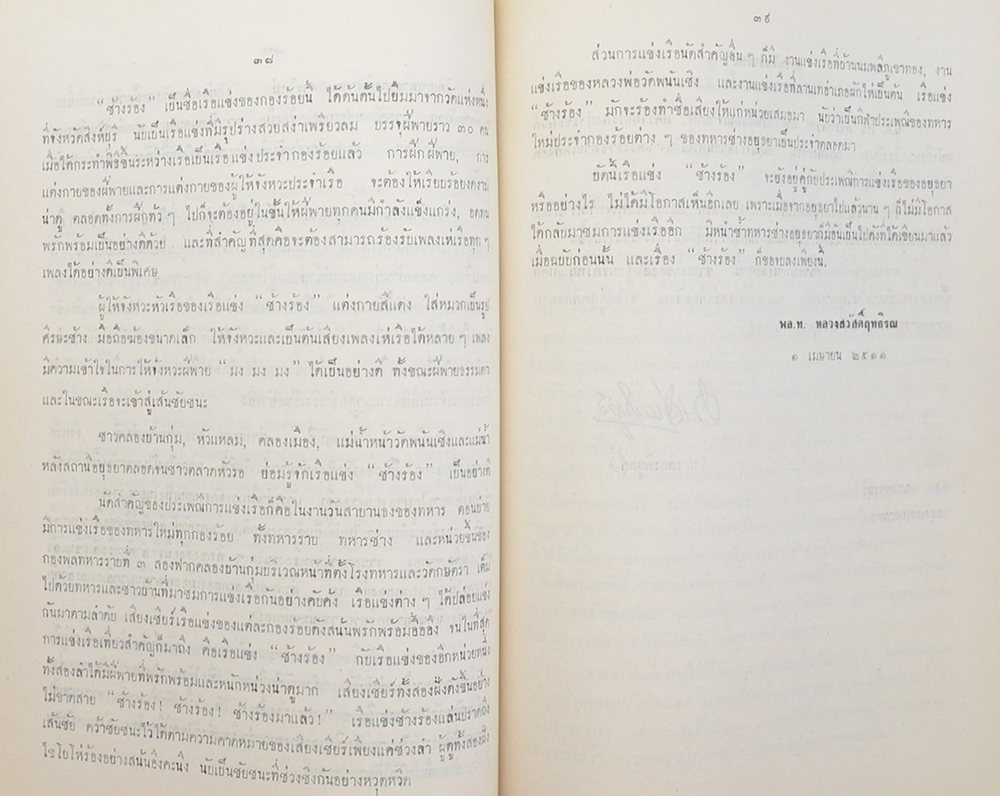 ๓๘
“ช้างร้อง” เป็นชื่อเรือแข่งของกองร้อยนี้ ได้ดั้นด้นไปยืมมาจากวัดแห่งหนึ่ง
ที่จังหวัดสิงห์บุรี นับเป็นเรือแข่งที่มีรูปร่างสวยสง่าเพรียวลม บรรจุฝีพายราว ๓๐ คน
เมื่อได้กระทำพิธีขึ้นระหว่างเรือเป็นเรือแข่งประจำกองร้อยแล้ว การฝึกฝีพาย, การ
แต่งกายของฝีพายและการแต่งกายของผู้ให้จังหวะประจำเรือ จะต้องให้เรียบร้อยงดงาม
น่าดู ตลอดทั้งการฝึกทั่ว ๆ ไปก็จะต้องอยู่ในขั้นให้ฝีพายทุกคนมีกำลังแข็งแกร่ง, อดทน
พรักพร้อมเป็นอย่างดีด้วย และที่สำคัญที่สุดคือจะต้องสามารถร้องรับเพลงเห่เรือทุก ๆ
เพลงได้อย่างดีเป็นพิเศษ
ผู้ให้จังหวะหัวเรือของเรือแข่ง “ช้างร้อง” แต่งกายสีแดง ใส่หมวกเป็นรูป
ศีรษะช้าง มือถือฆ้องขนาดเล็ก ให้จังหวะและเป็นต้นเสียงเพลงเห่เรือได้หลาย ๆ เพลง
มีความเข้าใจในการให้จังหวะฝีพาย “มง มง มง” ได้เป็นอย่างดี ทั้งขณะฝีพายธรรมดา
และในขณะเรือจะเข้าสู่เส้นชัยชนะ
ชาวคลองบ้านกุ่ม, หัวแหลม, คลองเมือง, แม่น้ำหน้าวัดพนันเชิงและแม่น้ำ
หลังสถานีอยุธยาตลอดจนชาวตลาดหัวรอ ย่อมรู้จักเรือแข่ง “ช้างร้อง” เป็นอย่างดี
นัดสำคัญของประเพณีการแข่งเรือก็คือในงานวันสาบานธงของทหาร ตอนบ่าย
มีการแข่งเรือของทหารใหม่ทุกกองร้อย ทั้งทหารราบ ทหารช่าง และหน่วยขึ้นของ
กองพลทหารราบที่ ๓ สองฟากคลองบ้านกุ่มบริเวณหน้าที่ตั้งโรงทหารและวัดกษัตรา เต็ม
ไปด้วยทหารและชาวบ้านที่มาชมการแข่งเรือกันอย่างคับคั่ง เรือแข่งต่าง ๆ ได้ปล่อยแข่ง
กันมาตามลำดับ เสียงเชียร์เรือแข่งของแต่ละกองร้อยดังสนั่นพรักพร้อมอื้ออึง จนในที่สุด
การแข่งเรือเที่ยวสำคัญก็มาถึง คือเรือแข่ง “ช้างร้อง” กับเรือแข่งของอีกหน่วยหนึ่ง
ทั้งสองลำได้มีฝีพายที่พรักพร้อมและหนักหน่วงน่าดูมาก เสียงเชียร์ทั้งสองฝั่งดังขึ้นอย่าง
ไม่ขาดสาย “ช้างร้อง! ช้างร้อง! ช้างร้องมาแล้ว!” เรือแข่งช้างร้องแล่นปราดถึง
เส้นชัย คว้าชัยชนะไว้ได้ตามความคาดหมายของเสียงเชียร์เพียงแค่ช่วงลำ ผู้ดูทั้งสองฝั่ง
ไชโยโห่ร้องอย่างสนั่นอึงคะนึง นับเป็นชัยชนะที่ช่วงชิงกันอย่างหวุดหวิด
๓๙
ส่วนการแข่งเรือนัดสำคัญอื่น ๆ ก็มี งานแข่งเรือที่ย่านนมพลีภูเขาทอง, งาน
แข่งเรือของหลวงพ่อวัดพนันเชิง และงานแข่งเรือที่ลานเทอำเภอผักไห่เป็นต้น เรือแข่ง
“ช้างร้อง” มักจะร้องทำชื่อเสียงให้แก่หน่วยเสมอมา นับว่าเป็นกีฬาประเพณีของทหาร
ใหม่ประจำกองร้อยต่าง ๆ ของทหารช่างอยุธยาเป็นประจำตลอดมา
บัดนี้เรือแข่ง “ช้างร้อง” จะยังอยู่คู่กับประเพณีการแข่งเรือของอยุธยา
หรืออย่างไร ไม่ได้มีโอกาสเห็นอีกเลย เพราะเมื่อจากอยุธยาไปแล้วนาน ๆ ก็ไม่มีโอกาส
ได้กลับมาชมการแข่งเรืออีก มิหนำซ้ำทหารช่างอยุธยาก็มีอันเป็นไปดังที่ได้เขียนมาแล้ว
เมื่อฉบับก่อนนั้น และเรื่อง “ช้างร้อง” ก็จบลงเพียงนี้.
พล.ท. หลวงสวัสดิ์ฤทธิรณ
๑ เมษายน ๒๕๑๑